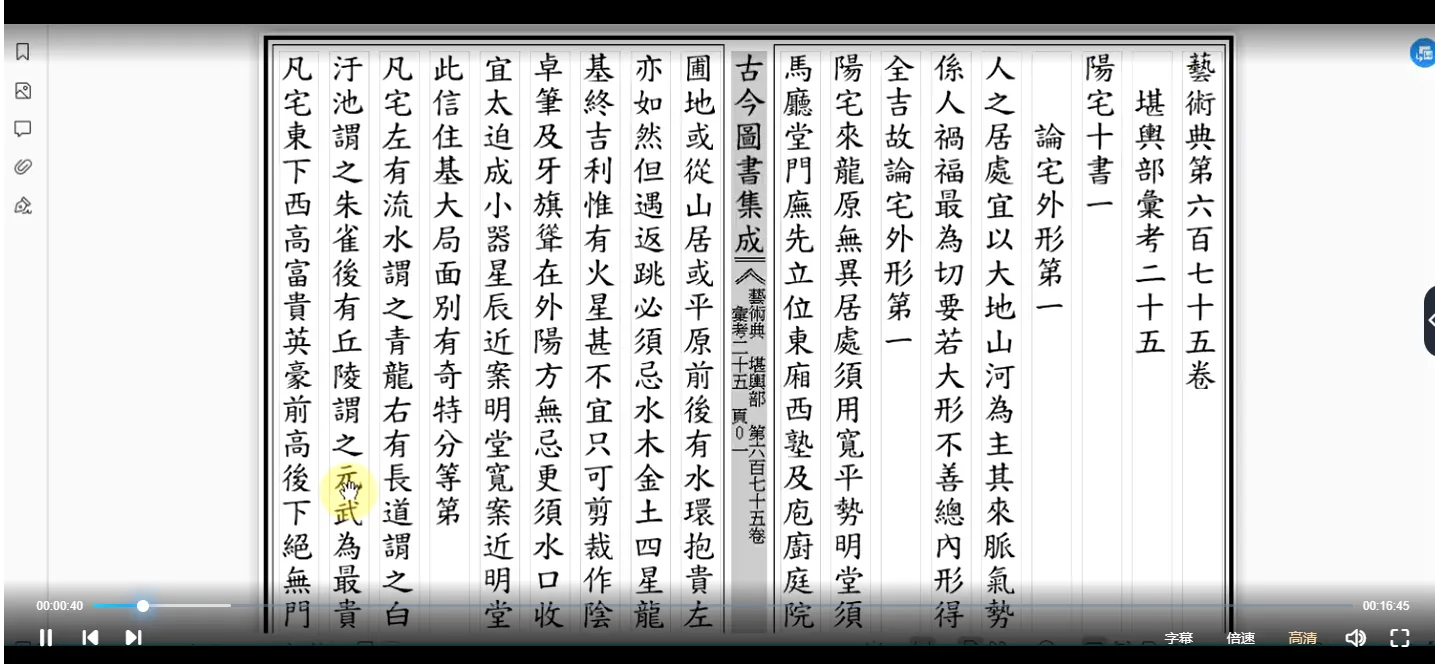 藝術典第六百七十五卷
堪輿部彙考二十五
陽宅十書一
論宅外形第一
人之居處宜以大地山河為主其來脈氣勢
係人禍福最為切要若大形不善總內形得
全吉故論宅外形第一
陽宅來龍原無異居處須用寬平勢明堂須
馬廳堂門廡先立位東廂西塾及庖廚庭院
古今圖書集成
藝術典 堪輿部 第六百七十五卷
彙考二十五 頁0一
圃地或從山居或平原前後有水環抱貴左
亦如然但遇返跳必須忌水木金土四星龍
基終吉利惟有火星甚不宜只可剪裁作陰
卓筆及牙旗聳在外陽方無忌更須水口收
宜太迫成小器星辰近案明堂寬案近明堂
此信住基大局面別有奇特分等第
凡宅左有流水謂之青龍右有長道謂之白
汙池謂之朱雀後有丘陵謂之元武為最貴
凡宅東下西高富貴英豪前高後下絕無門
00:00:40
00:16:45
字幕 倍速 高清